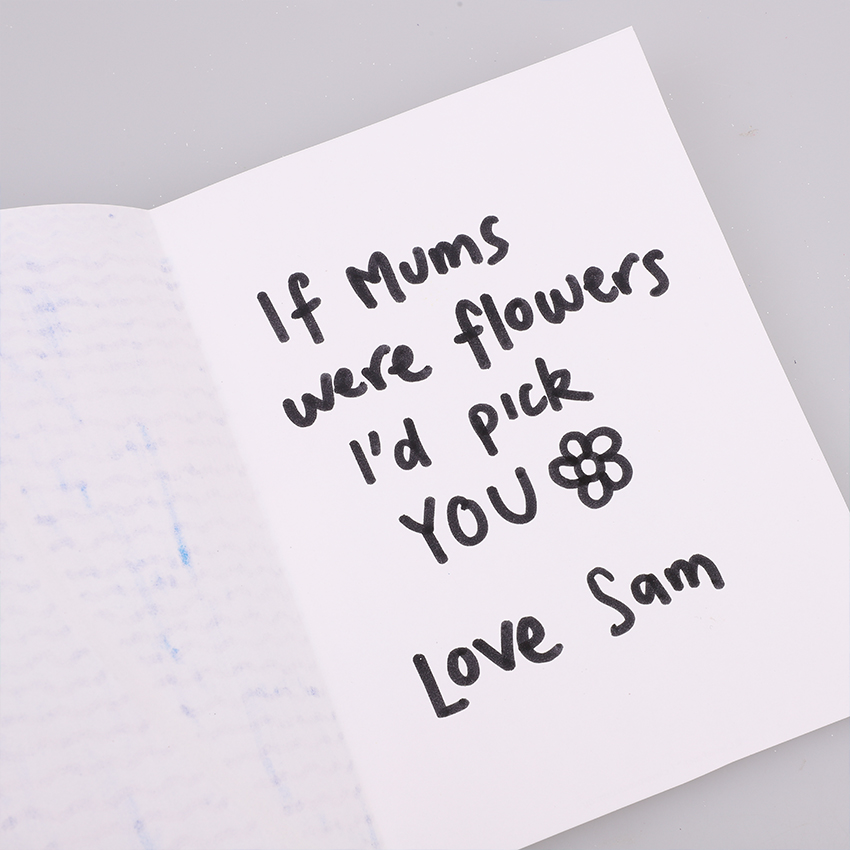 If Mums
were flowers
I'd pick
YOU
Love Sam